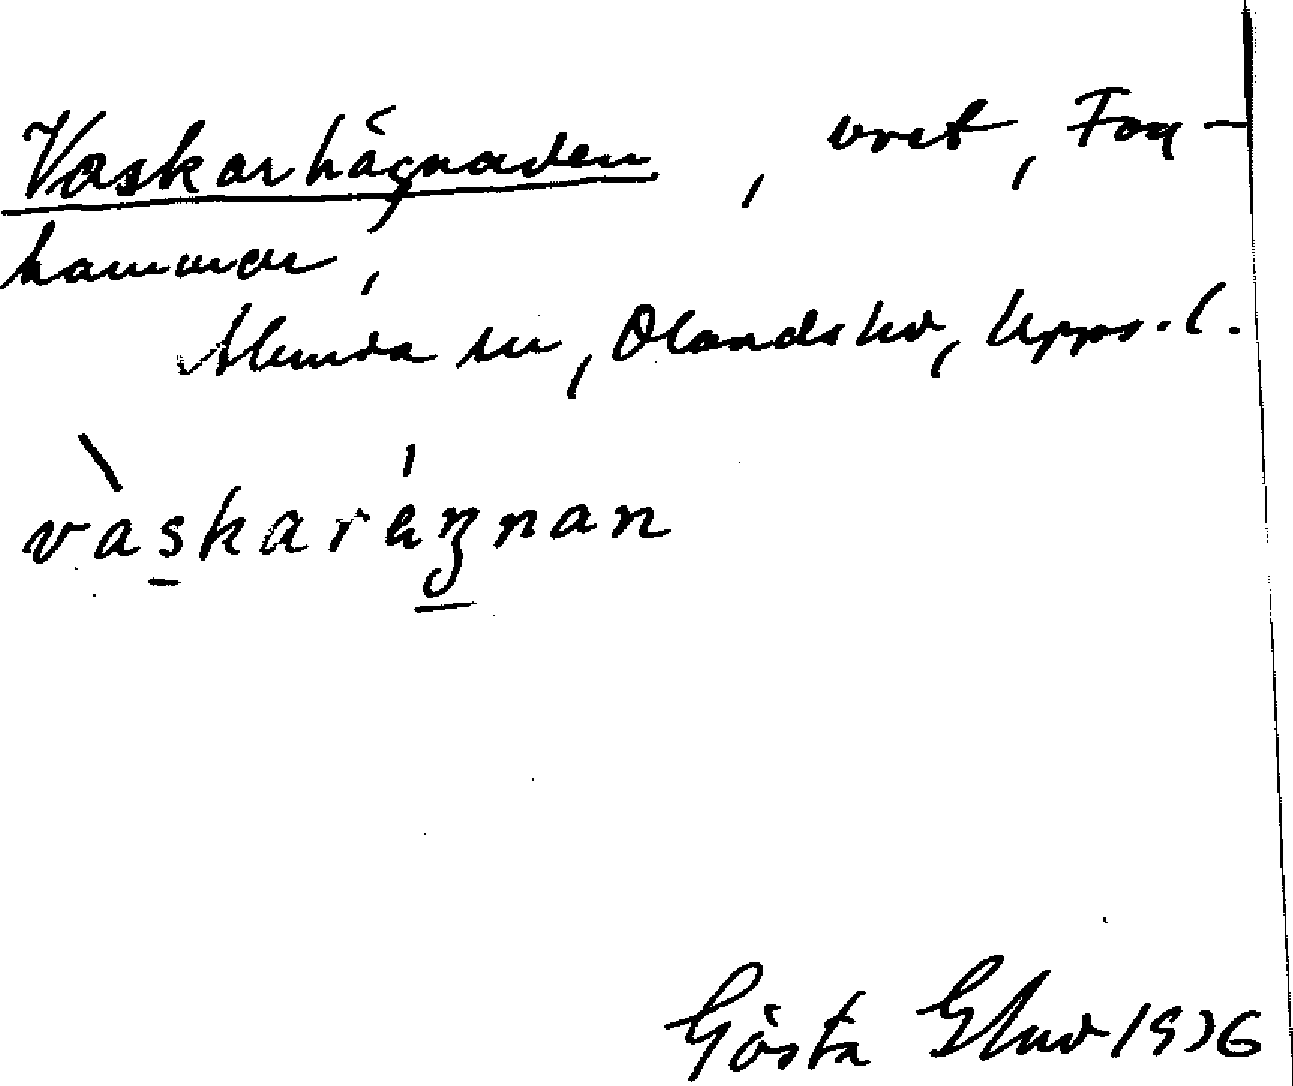 Vaskarhägnaden, vret, Fog-
hammar,
Alunda sn, Olands hd, Upps. l.
vàskaráʒnan
Gösta 1936